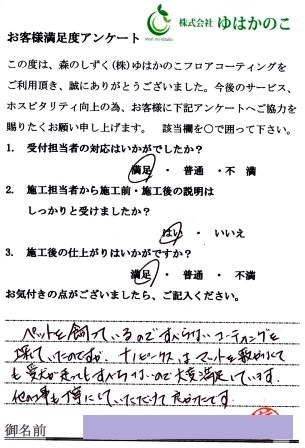 株式会社 ゆはかのこ
お客様満足度アンケート
この度は、森のしずく(株)ゆはかのこフロアコーティングを
ご利用頂き、誠にありがとうございました。今後のサービス、
ホスピタリティ向上の為、お客様に下記アンケートへご協力を
賜りたくお願い申し上げます。 該当欄を○で囲って下さい。
1. 受付担当者の対応はいかがでしたか?
満足 ・ 普通 ・ 不 満
2. 施工担当者から施工前・施工後の説明は
しっかりと受けましたか?
はい ・ いいえ
3. 施工後の仕上がりはいかがですか?
満足 ・ 普通 ・ 不満
お気付きの点がございましたら、ご記入ください。
ペットを飼っているのですべらないコーティングを
探していたのですが、ナノピークスはマットを敷かなくて
も愛犬が走ってもすべらないので大変満足しています。
他の事も丁寧にしていただけて良かったです。
御名前